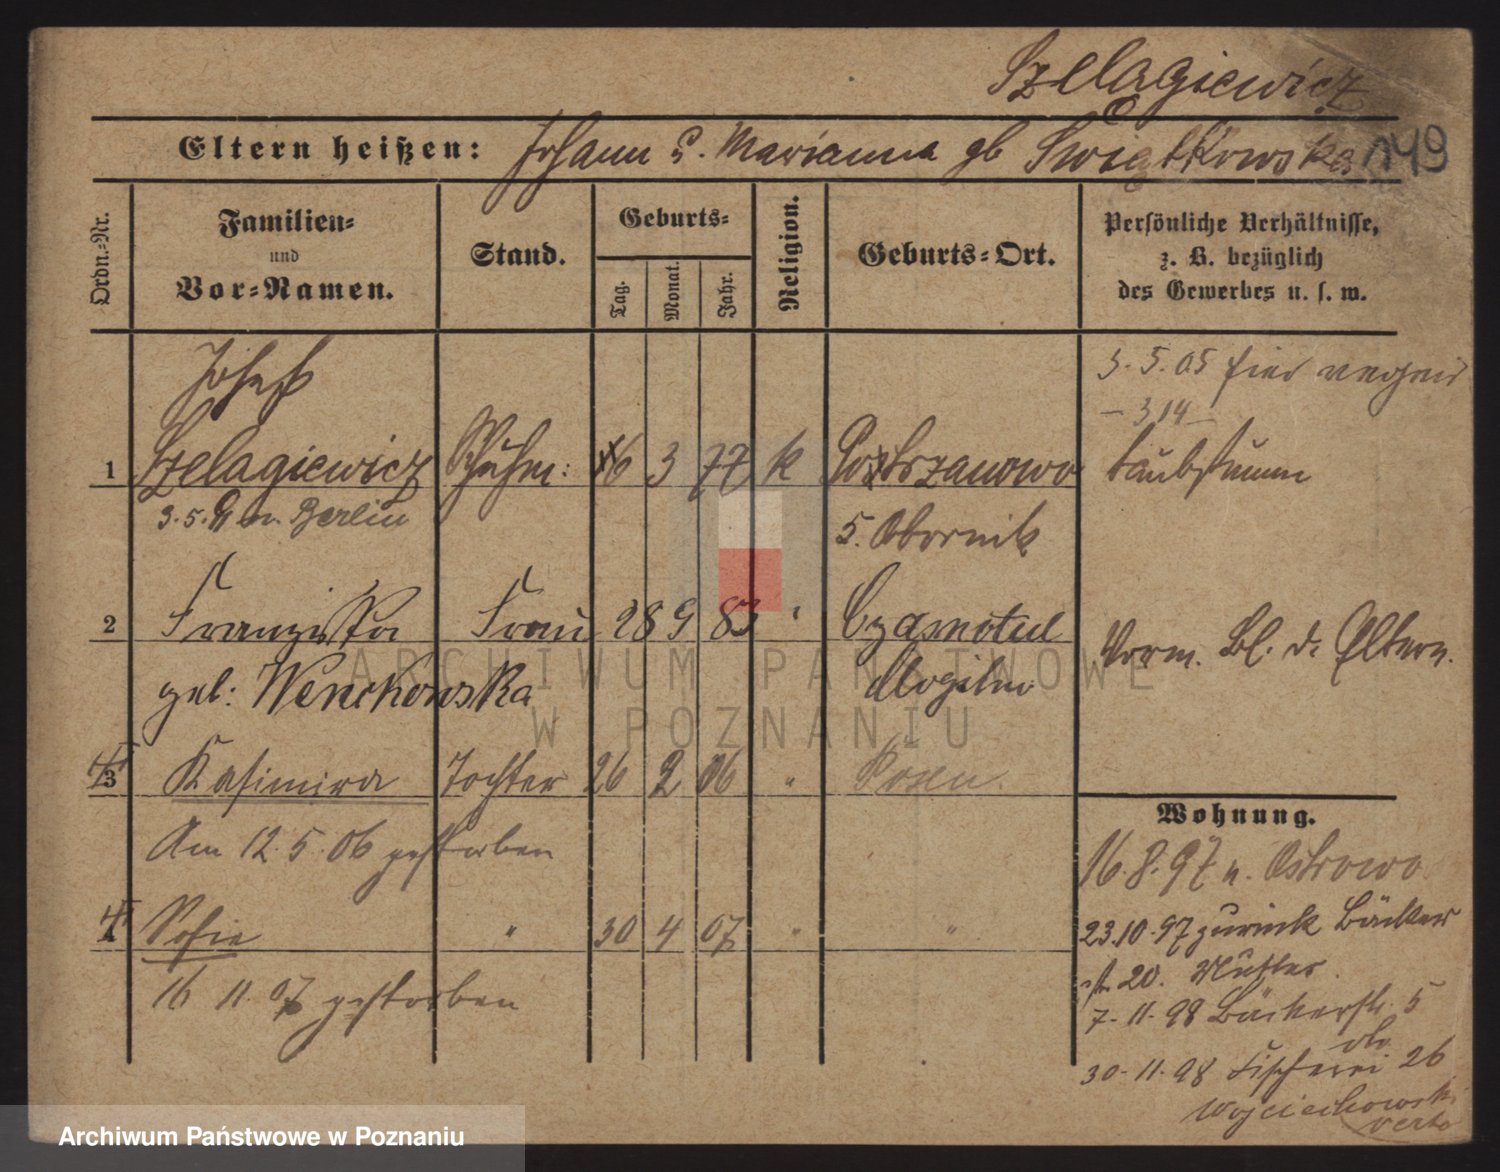 Szelagiewicz
Eltern heißen: Johann u. Marianna gb Swiątkowska 149
Ordn.=Nr.
Familien=
und
Vor=Namen.
Stand.
Geburts=
Tag.
Monat.
Jahr.
Religion.
Geburts=Ort.
Persönliche Verhältnisse,
z. B. bezüglich
des Gewerbes u. s. w.
Josef
3. 5. 05 hier
- 314 -
1 Szelagiewicz Schuhm: 16 3 77 k taubstumm
3. 5. n. Berlin
Obornik
2 Franziska Frau 28 9 83 "
geb: Wenckowska Mogilno
Vorm. Bl. d. Eltern.
3 Kasimira Tochter 26 2 06 " Posen.
Am 12. 5. 06 gestorben
4 Sofie " 30 4 07 " "
16 11. 07 gestorben
Wohnung.
16. 8. 97 n. Ostrowo
23.10.97 zurück Bäcker
str. 20. Mutter.
7. 11. 98 Bäckerstr. 5
30. 11. 98 Fischerei 26
Wojciechowski
verte
ARCHIWUM PAŃSTWOWE
W POZNANIU
Archiwum Państwowe w Poznaniu